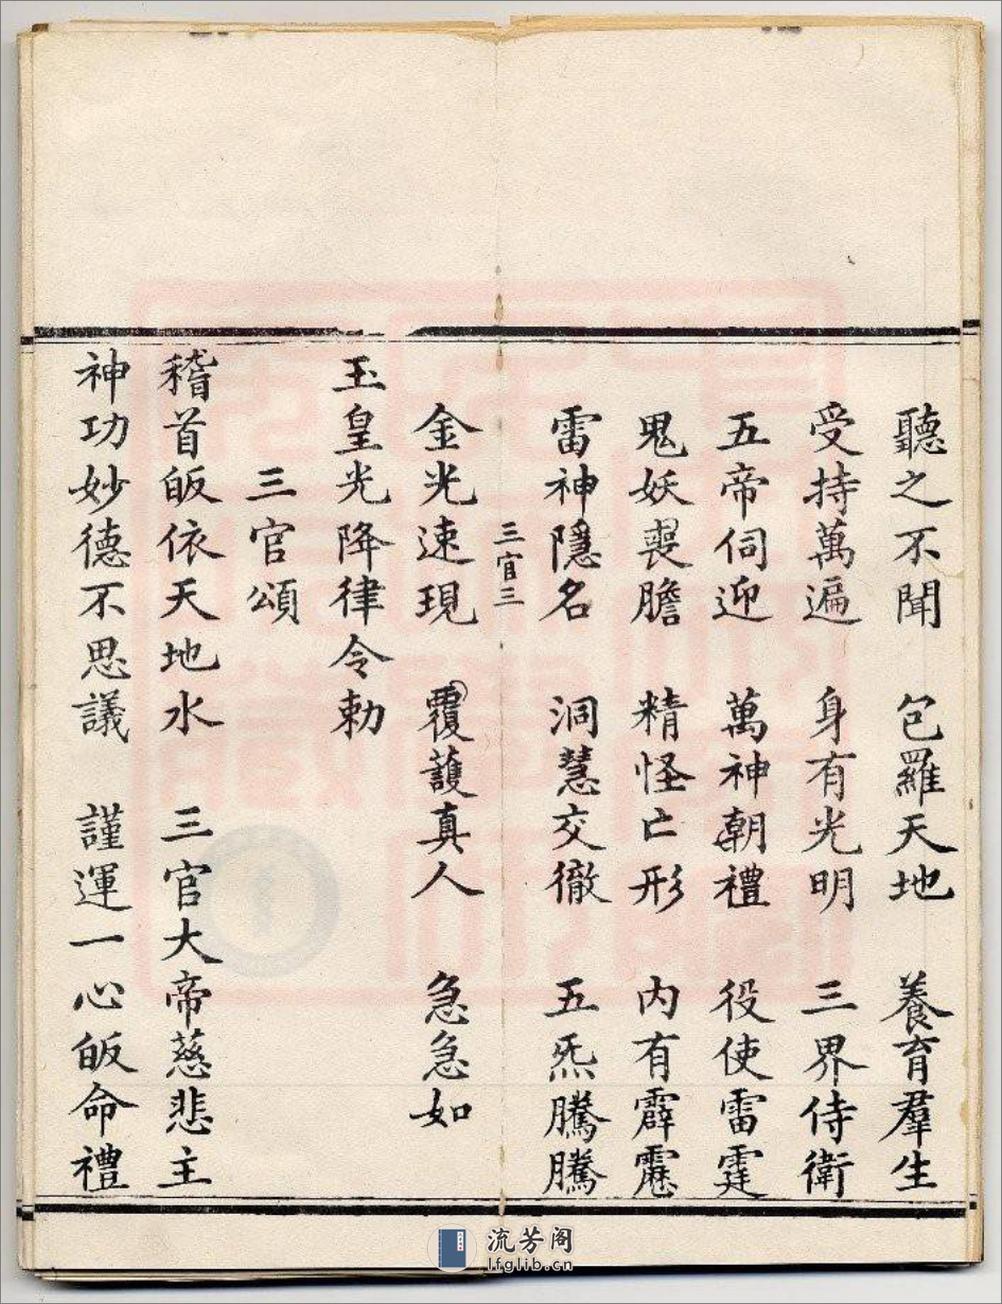 聽之不聞　包羅天地　養育羣生
受持萬遍　身有光明　三界侍衛
五帝伺迎　萬神朝禮　役使雷霆
鬼妖喪膽　精怪亡形　內有霹靂
雷神隱名　洞慧交徹　五炁騰騰
三官三
金光速現　覆護真人　急急如
玉皇光降律令勅
三官頌
稽首皈依天地水　三官大帝慈悲主
神功妙德不思議　謹運一心皈命禮
流芳阁
lfglib.cn